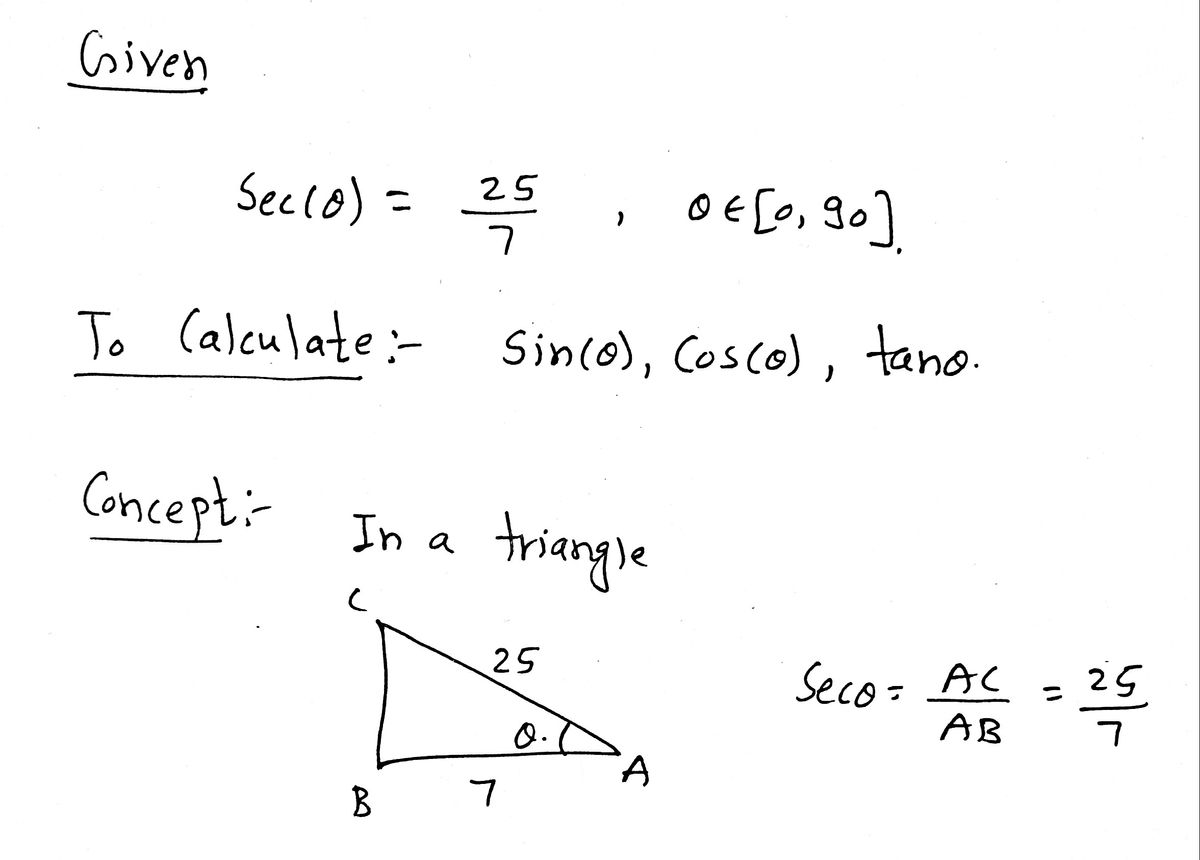 Given
Sec(θ) = 25/7 , θ ∈ [0, 90].
To Calculate :- Sin(θ), Cos(θ), tanθ.
Concept :- In a triangle
C
25
Secθ = AC/AB = 25/7
θ.
A
B
7